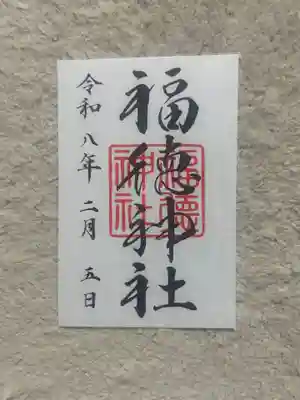 福徳神社
福德神社
令和八年二月五日